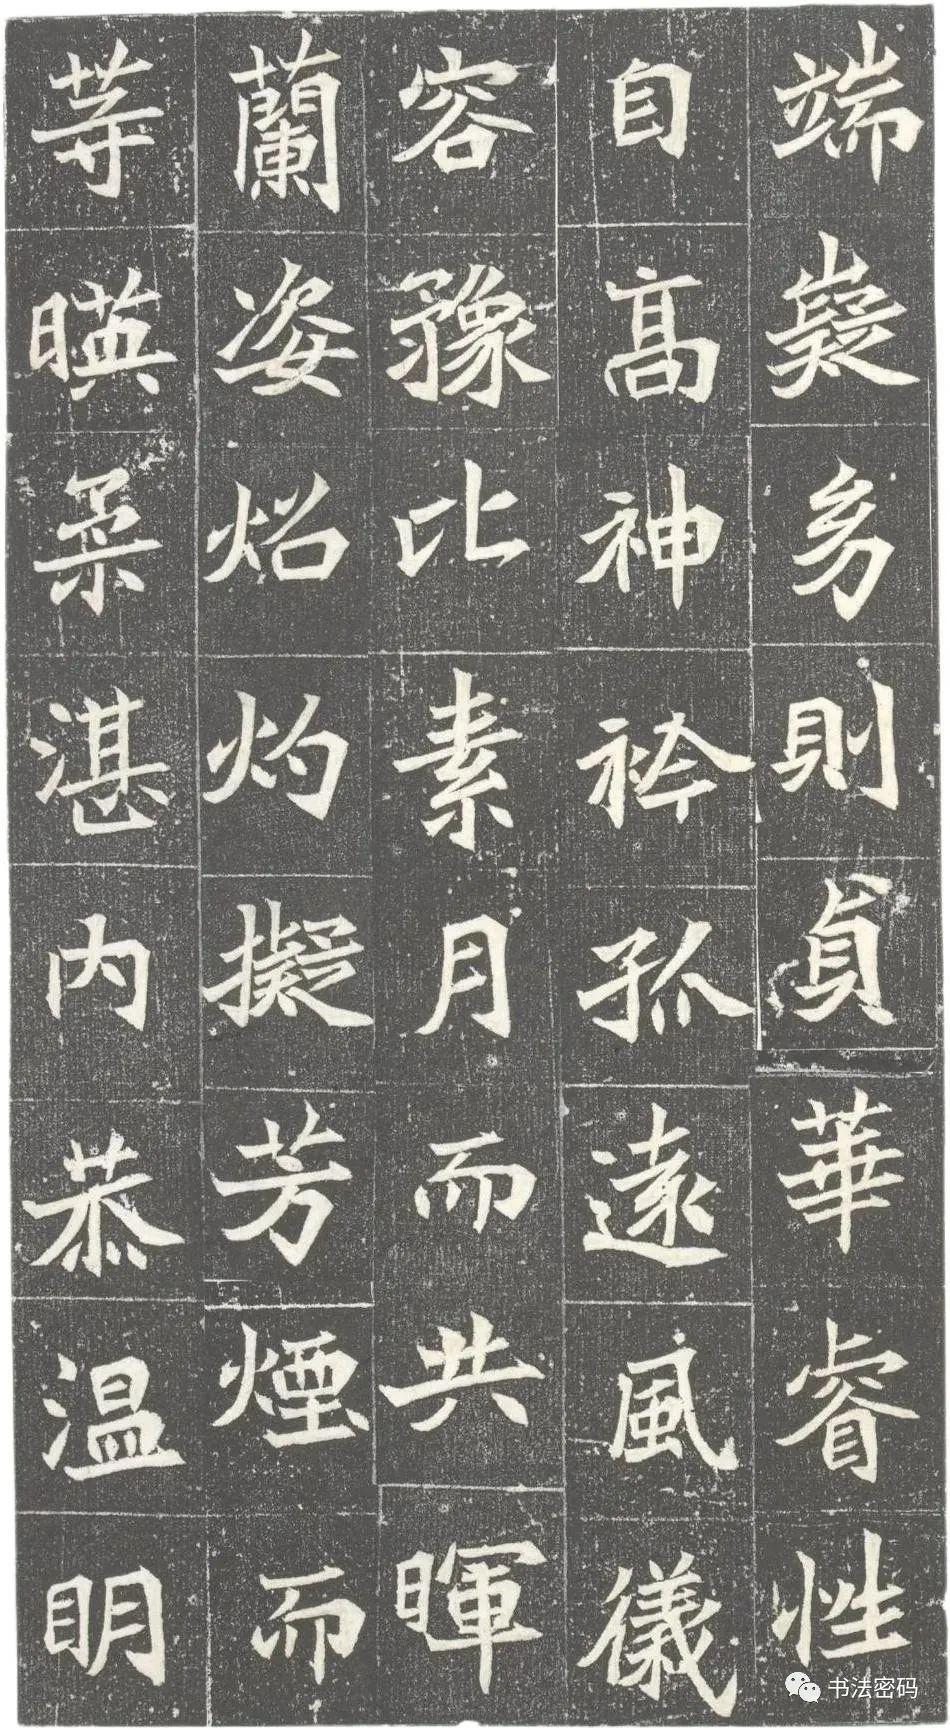 端嶷幼則貞華睿性
自高神衿孤遠風儀
容豫比素月而共暉
蘭姿炤灼擬芳煙而
等暎柔湛内恭温明
书法密码